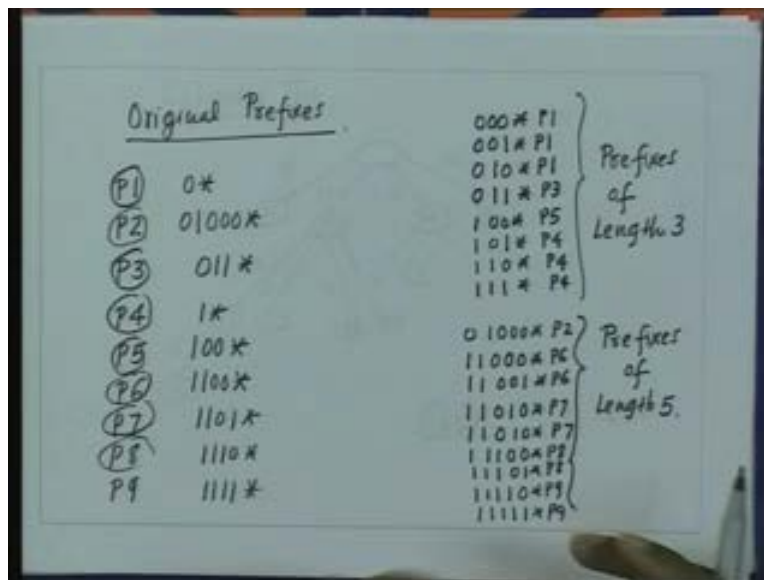 Original Prefixes
P1 0*
P2 01000*
P3 011*
P4 1*
P5 100*
P6 1100*
P7 1101*
P8 1110*
P9 1111*
000* P1
001* P1
010* P1
011* P3
100* P5
101* P4
110* P4
111* P4
Prefixes
of
Length 3
01000* P2
11000* P6
11001* P6
11010* P7
11010* P7
11100* P8
11101* P8
11110* P9
11111* P9
Prefixes
of
Length 5.